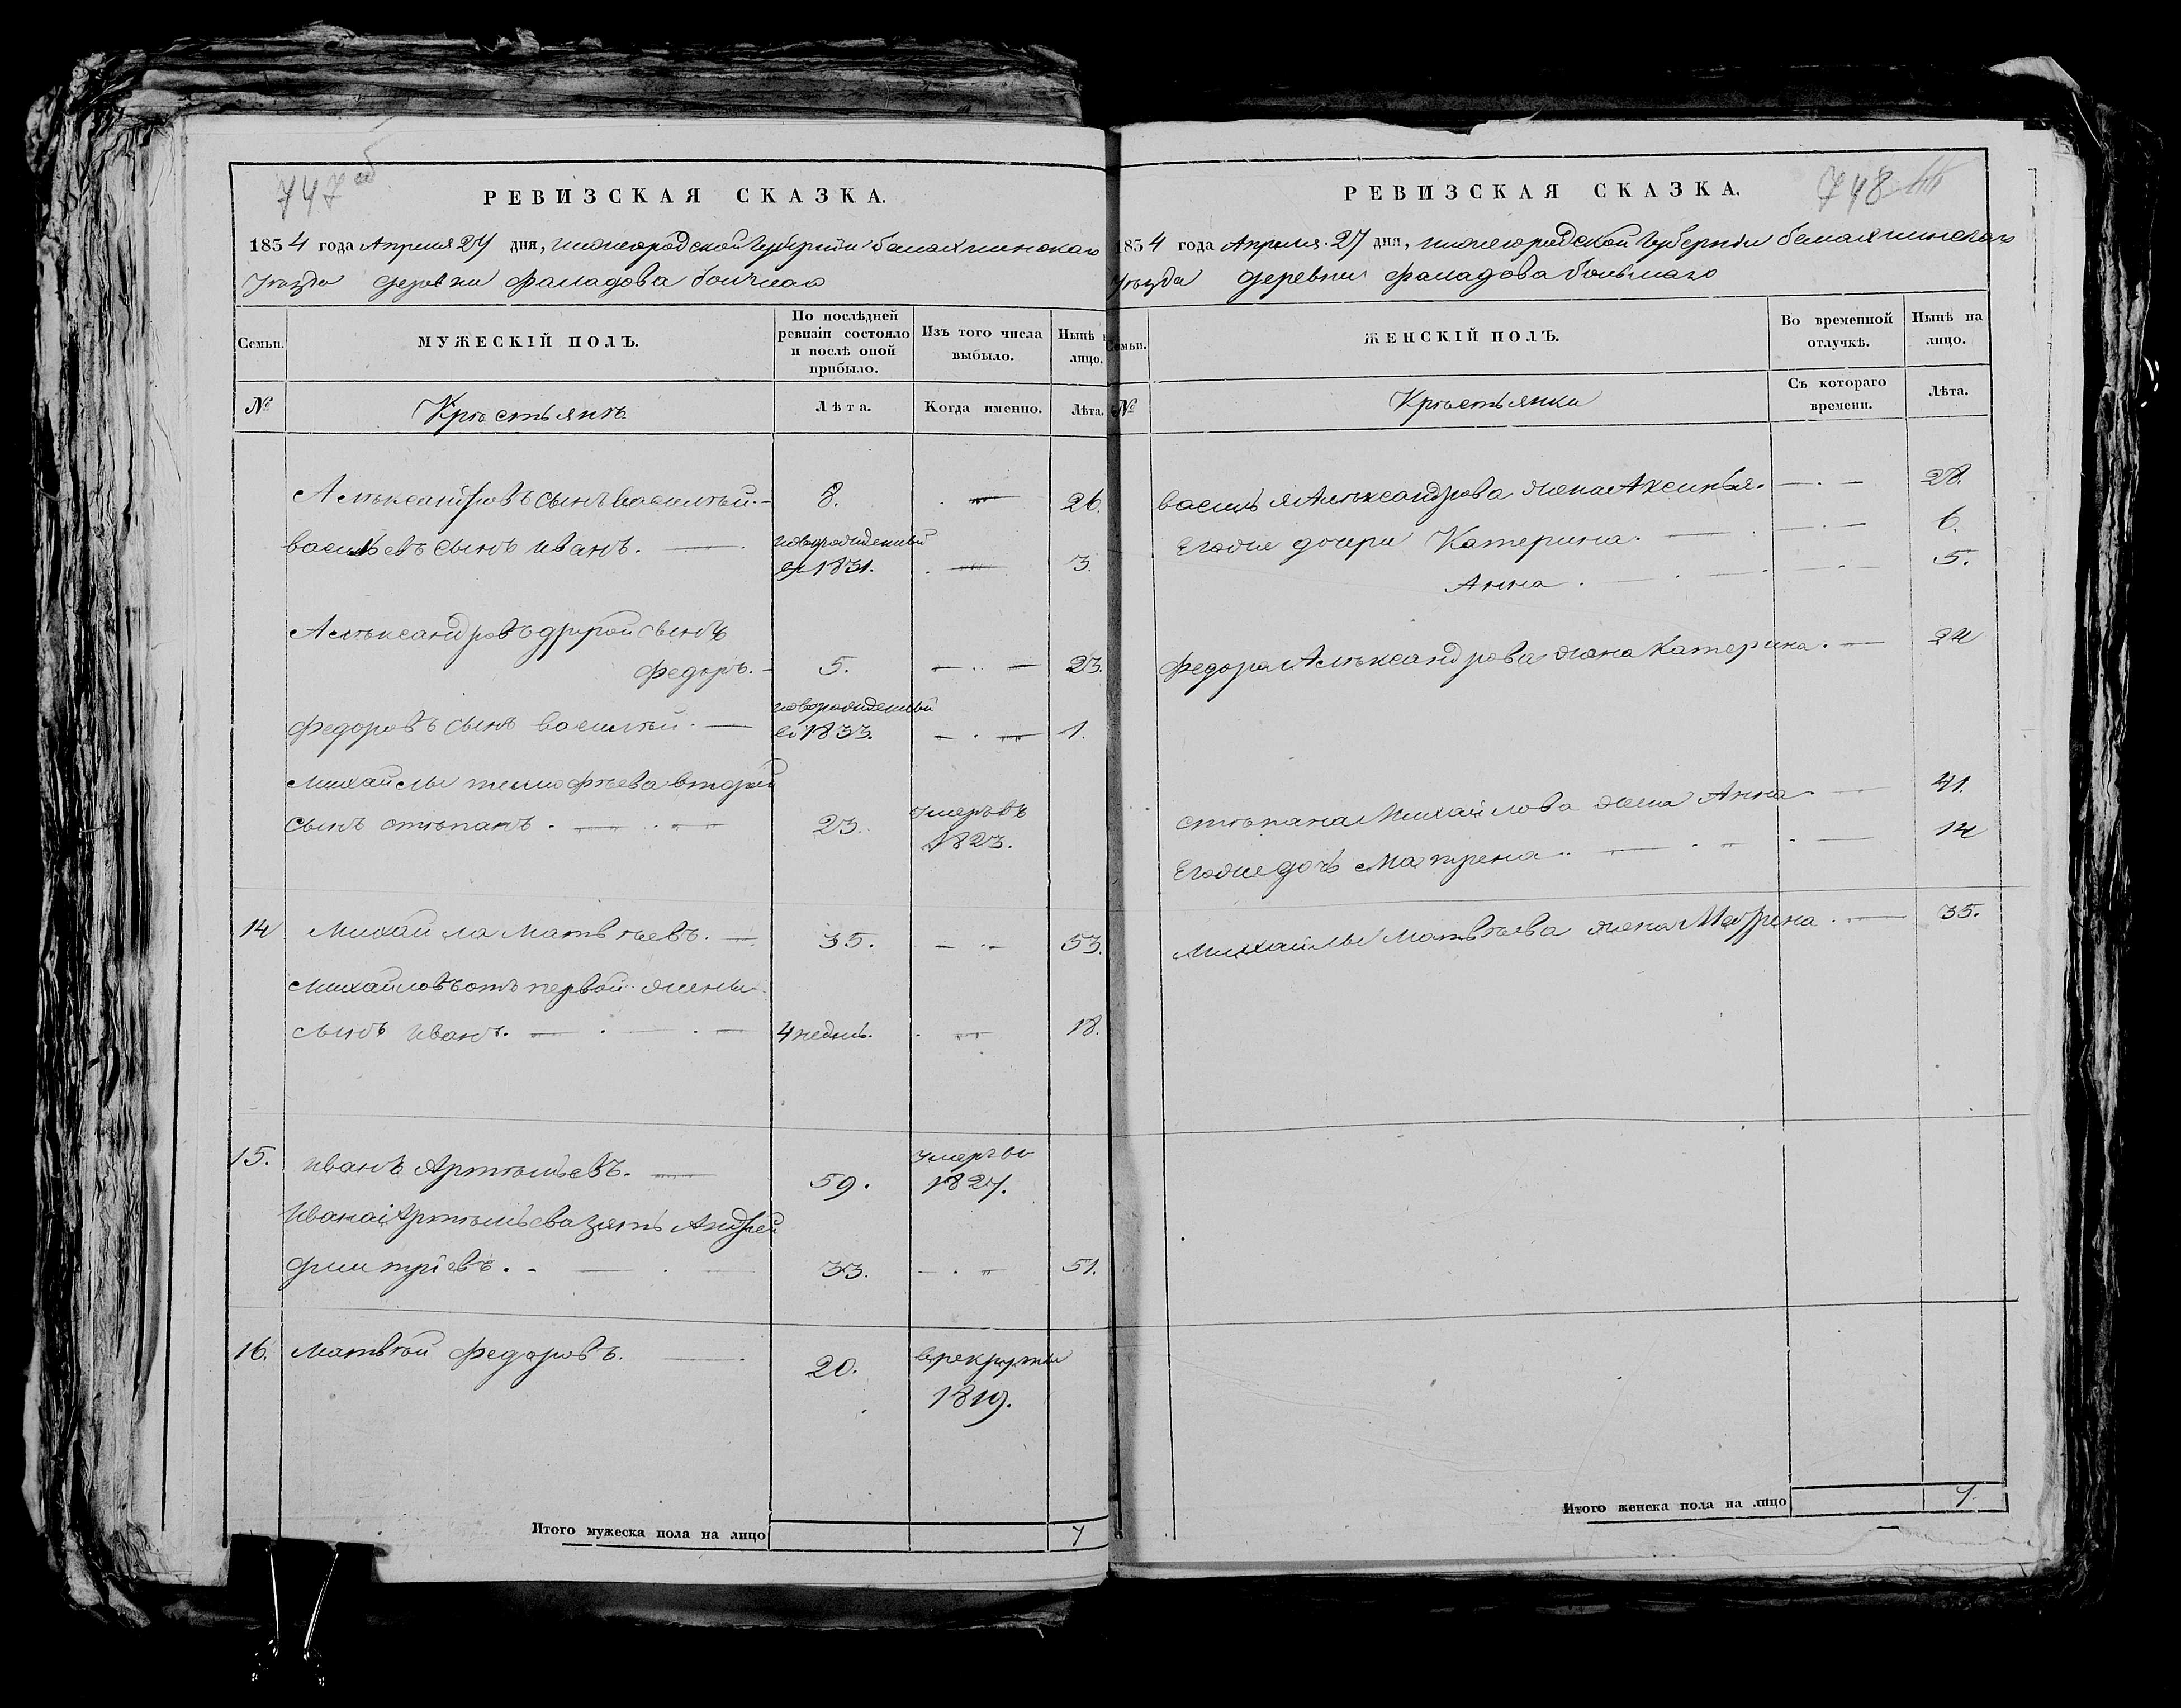 747 об
РЕВИЗСКАЯ СКАЗКА.
1834 года Апреля 27 дня, нижегородской Губернии балахнинскаго
уезда деревни Фаладова болшаго
Семьи. МУЖЕСКІЙ ПОЛЪ. По послѣдней ревизіи состояло и послѣ оной прибыло. Изъ того числа выбыло. Нынѣ лицо.
№ Крѣстьянѣ Лѣта. Когда именно. Лѣта.
Алѣксандровъ сынъ василѣй. 8. 26.
васильевъ сынъ иванъ. новорожденный
въ 1831. 3.
Алѣксандровъ другой сынъ
федоръ. 5. 23.
федоровъ сынъ василѣй. новорожденный
въ 1833. 1.
михайлы тимофѣева второй
сынъ стѣпанъ. 23. умеръ въ
1823.
14 Михайла Матвѣевъ. 35. 53.
михайловъ отъ первой жены
сынъ иванъ. 4 недѣль. 18.
15. иванъ Артѣмьевъ. 59. умеръ въ
1827.
Ивана Артѣмьева зять Андрей
дмитріевъ. 33. 51.
16. матвѣй федоровъ. 20. врекруты
1819.
Итого мужеска пола на лицо 7
748
РЕВИЗСКАЯ СКАЗКА.
1834 года Апреля 27 дня, нижегородской Губернии балахнинскаго
уезда деревни Фаладова большаго
Семьи. ЖЕНСКІЙ ПОЛЪ. Во временной отлучкѣ. Нынѣ на лицо.
№ Крѣстьянки Съ котораго времени. Лѣта.
василья Алѣксандрова жена Аксинья. 28.
Егоже дочери Катерина. 6.
Анна. 5.
федора Алѣксандрова жена Катерина. 24
стѣпана Михайлова жена Анна 41.
Егоже дочь Матрена 14
михайлы матвѣева жена Марина. 35.
Итого женска пола на лицо 7.